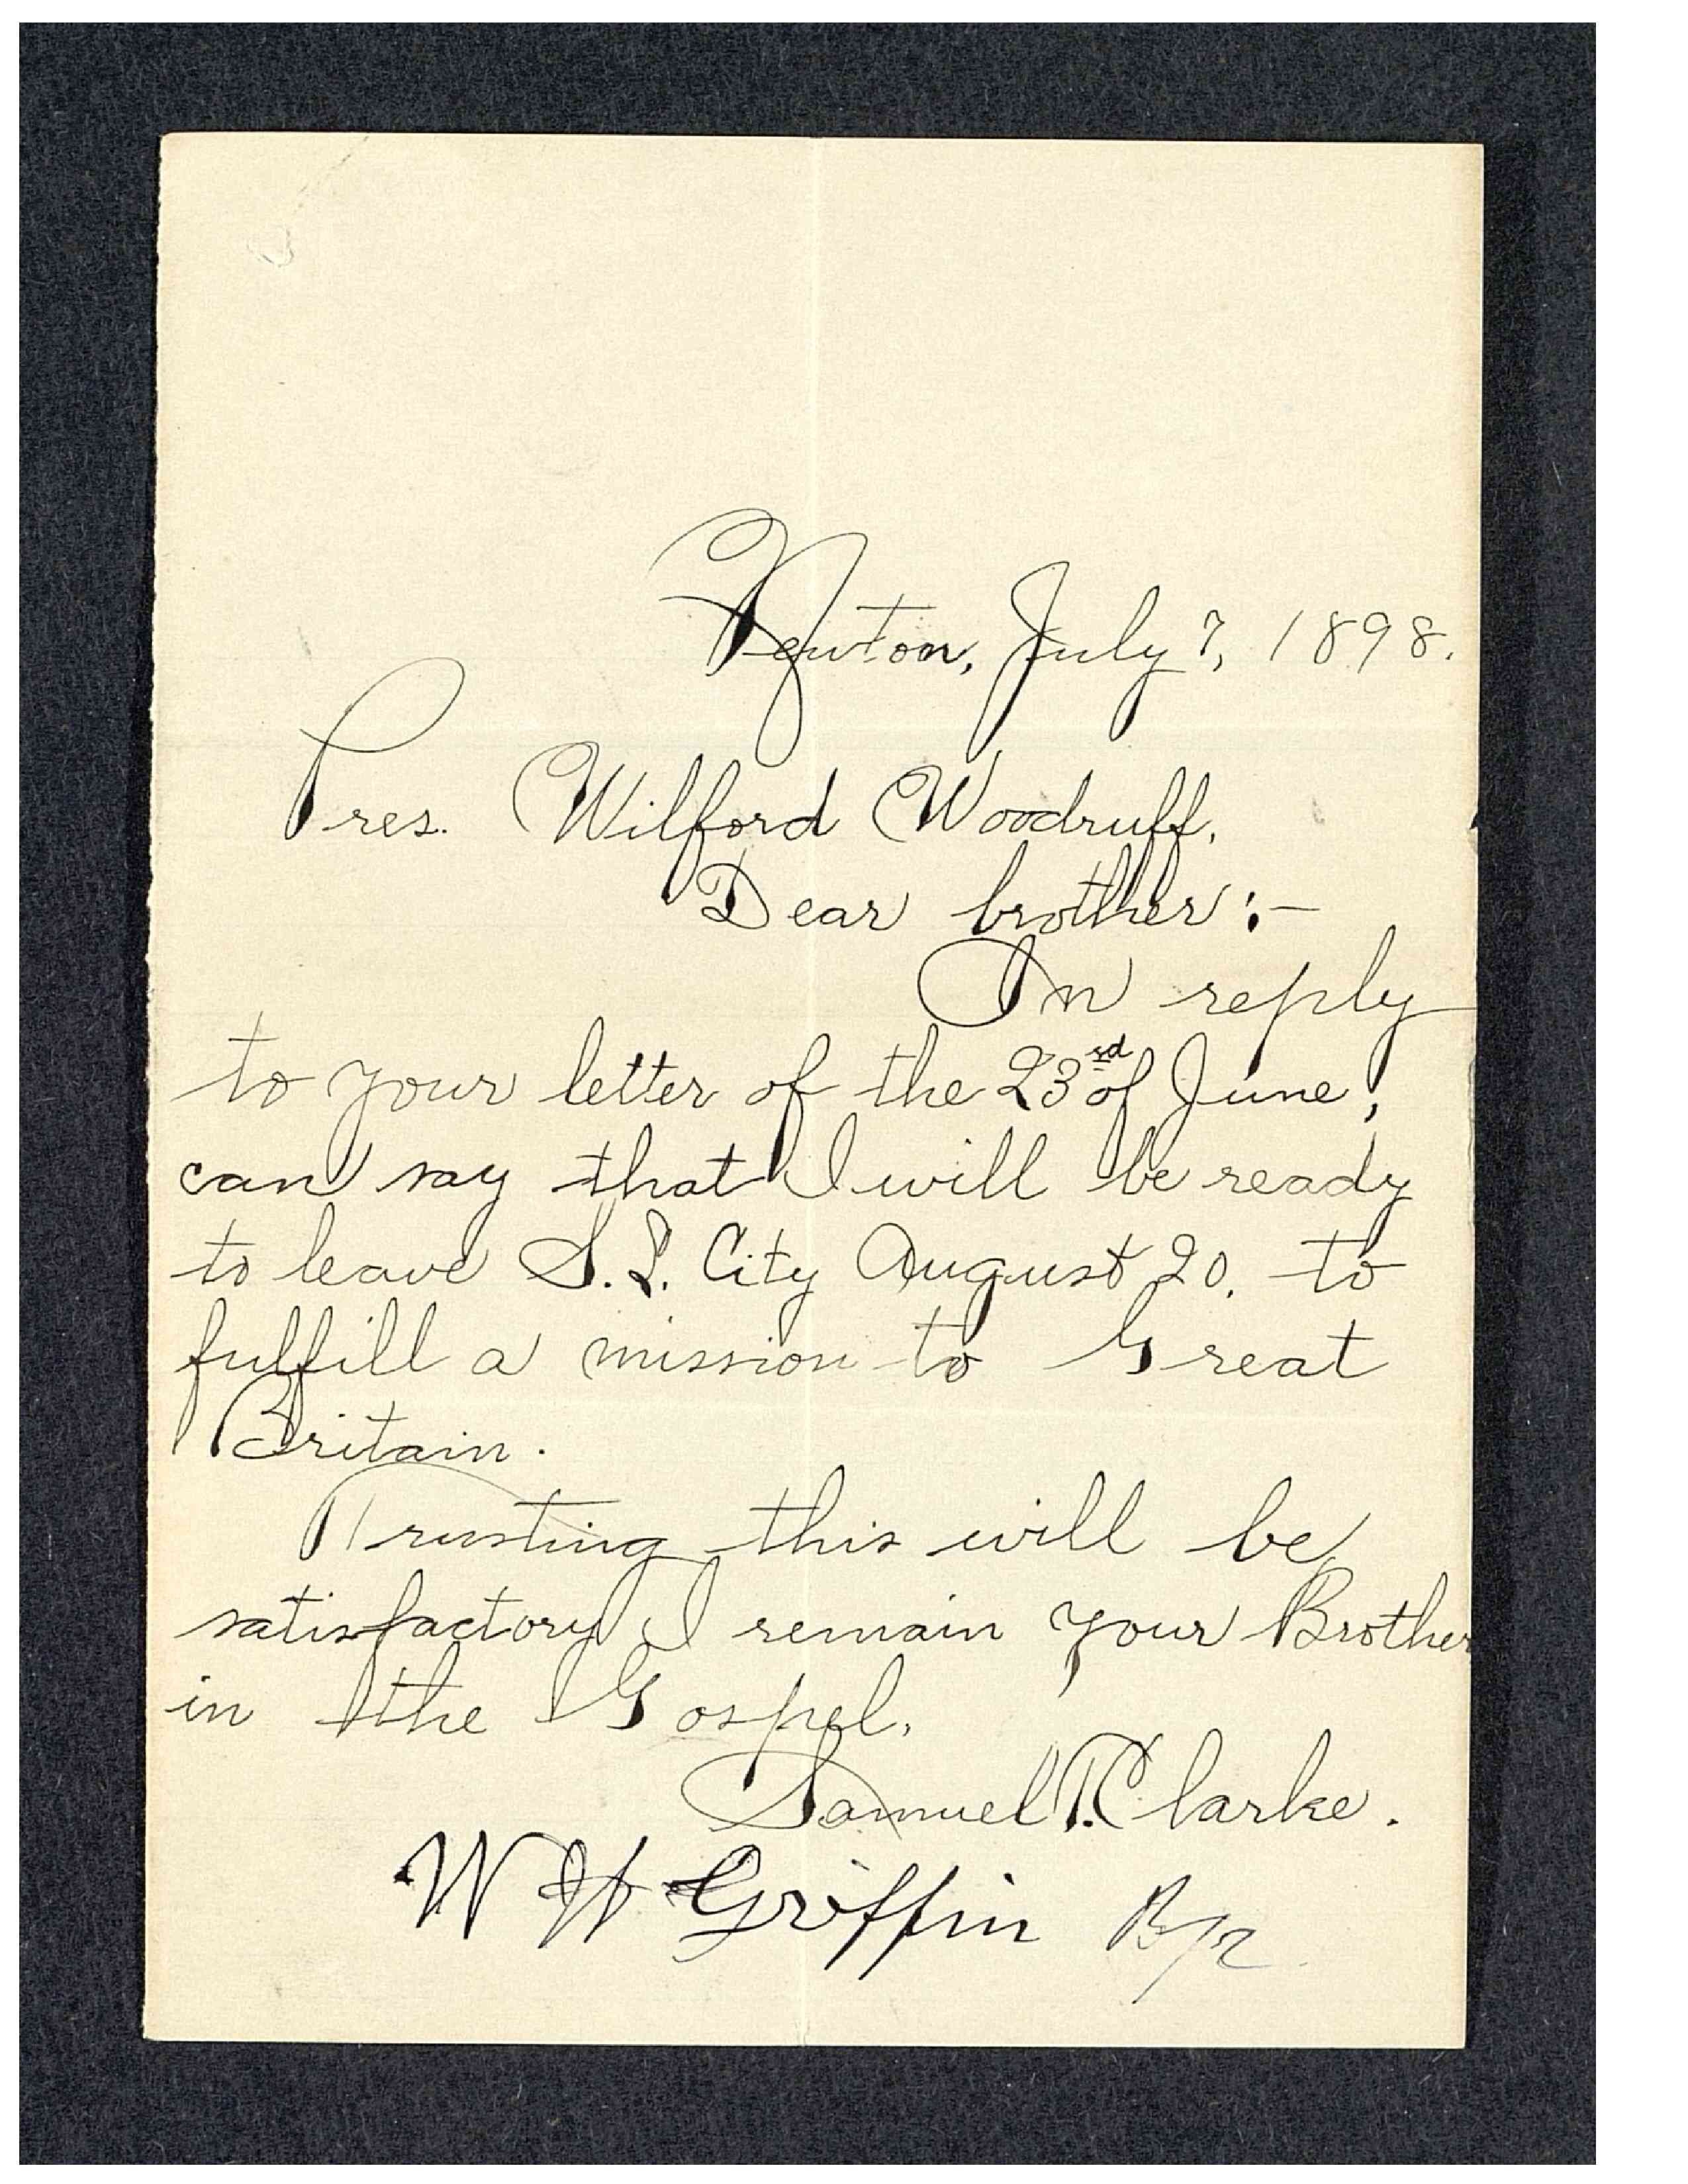 Newton, July 7, 1898.
Pres. Wilford Woodruff.
Dear brother:-
In reply
to your letter of the 23rd of June,
can say that I will be ready
to leave S. L. City August 20, to
fulfill a mission to Great
Britain.
Trusting this will be
satisfactory I remain your Brother
in the Gospel.
Samuel T. Clarke.
W H Griffin Bp